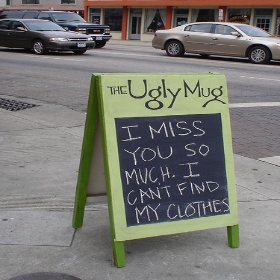 THE Ugly Mug
I MISS
YOU SO
MUCH. I
CANT FIND
MY CLOTHES